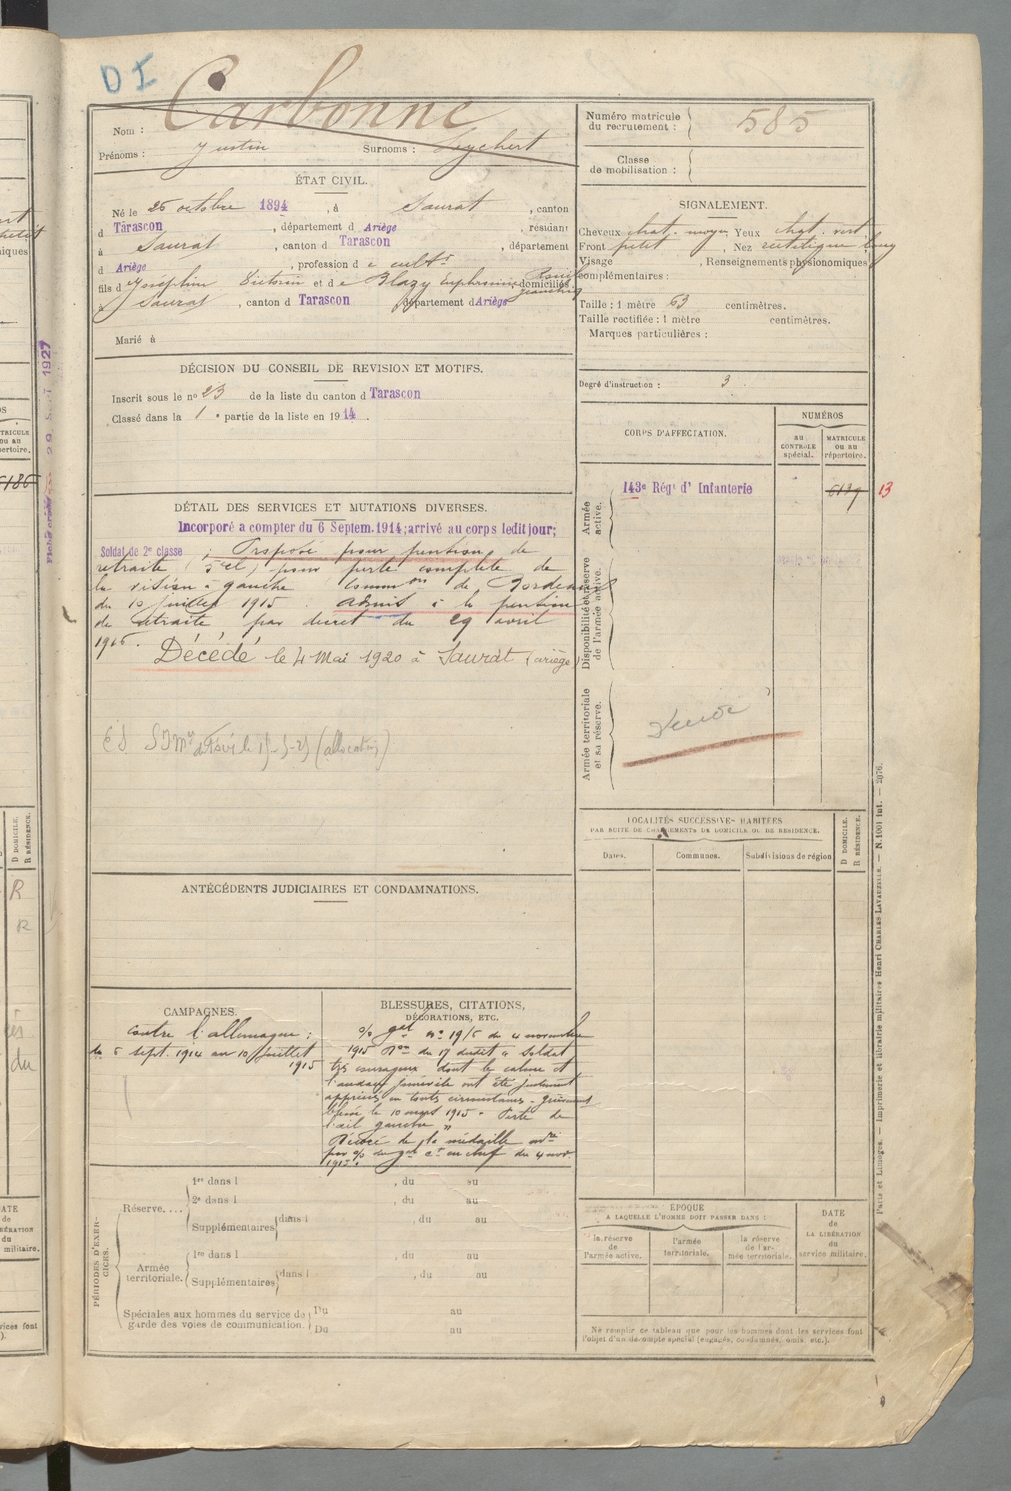 DI
Carbonne
Nom :
Prénoms : Justin Surnoms :
ÉTAT CIVIL.
Né le 25 octobre 1894, à Saurat, canton
d Tarascon, département d Ariège, résidant
à Saurat, canton d Tarascon, département
d Ariège, profession d e cultr
fils d e Joséphin Victorin et d e Blazy Euphrosine domiciliés
à Saurat, canton d Tarascon département d Ariège
Marié à
DÉCISION DU CONSEIL DE REVISION ET MOTIFS.
Inscrit sous le no 23 de la liste du canton d Tarascon
Classé dans la 1e partie de la liste en 1914.
DÉTAIL DES SERVICES ET MUTATIONS DIVERSES.
Incorporé a compter du 6 Septem. 1914; arrivé au corps ledit jour;
Soldat de 2e classe ; Proposé pour pension de
retraite (5e cl) pour perte complète de
la vision à gauche Common de Bordeaux
du 10 juillet 1915. admis à la pension
de retraite par décret du 29 avril
1916.
Décédé le 4 Mai 1920 à Saurat (ariège)
(allocation)
ANTÉCÉDENTS JUDICIAIRES ET CONDAMNATIONS.
CAMPAGNES.
Contre l'allemagne :
du 6 sept. 1914 au 10 juillet
1915
BLESSURES, CITATIONS,
DÉCORATIONS, ETC.
o/o gal no 19/5 du 4 novembre
1915 Non du 17 dudit "Soldat
très courageux dont le calme et
l'audace juvénile ont été justement
appréciés en toutes circonstances. Grièvement
blessé le 10 mars 1915. Perte de
l'œil gauche"
Décoré de la médaille mre
par o/o du gal ct en chef du 4 nov.
1915.
PÉRIODES D'EXERCICES.
Réserve....
1re dans l , du au
2e dans l , du au
Supplémentaires dans l , du au
Armée territoriale.
1re dans l , du au
Supplémentaires dans l , du au
Spéciales aux hommes du service de Du au
garde des voies de communication. Du au
Numéro matricule
du recrutement : 585
Classe
de mobilisation :
SIGNALEMENT.
Cheveux chat. moyen Yeux chat. vert
Front petit, Nez rectiligne long
Visage , Renseignements physionomiques
complémentaires :
Taille : 1 mètre 63 centimètres.
Taille rectifiée : 1 mètre centimètres.
Marques particulières :
Degré d'instruction : 3
CORPS D'AFFECTATION.
NUMÉROS
AU
CONTRÔLE
spécial.
MATRICULE
OU AU
répertoire.
Armée
active.
143e Régt d' Infanterie
13
Disponibilité et réserve
de l'armée active.
Armée territoriale
et sa réserve.
LOCALITÉS SUCCESSIVES HABITÉES
PAR SUITE DE CHANGEMENTS DE DOMICILE OU DE RÉSIDENCE.
Dates.
Communes.
Subdivisions de région
D DOMICILE.
R RÉSIDENCE.
ÉPOQUE
A LAQUELLE L'HOMME DOIT PASSER DANS :
la réserve
de
l'armée active.
l'armée
territoriale.
la réserve
de l'ar-
mée territoriale.
DATE
de
LA LIBÉRATION
du
service militaire.
Ne remplir ce tableau que pour les hommes dont les services font
l'objet d'un décompte spécial (engagés, condamnés, omis, etc.).
Paris et Limoges. — Imprimerie et librairie militaires Henri CHARLES-LAVAUZELLE. — N. 1001 int. — 2976.